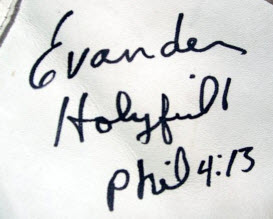 Evander
Holyfield
Phil 4:13